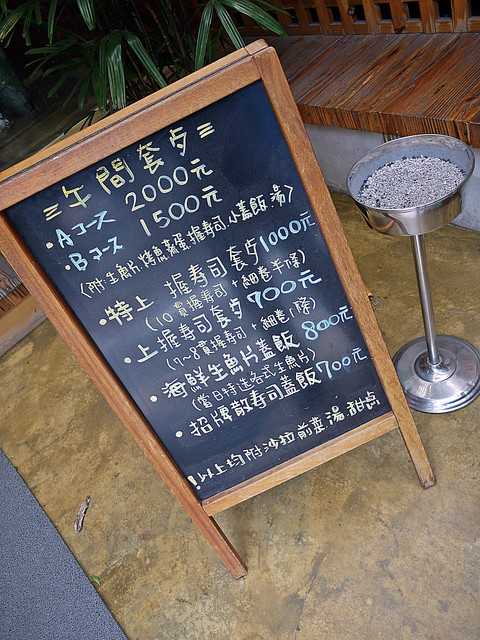 =午間套夕=
·Aコース 2000元
·Bコース 1500元
(附:生魚片.烤魚.蒸蛋.握寿司.小蓋飯.湯)
·特上 握寿司套夕1000元
(10貫握寿司+細巻半條)
·上握寿司套夕700元
(7~8貫握寿司+細巻1條)
·海鮮生魚片蓋飯 800元
(當日特選各式生魚片)
·招牌散寿司蓋飯700元
!以上均附沙拉前菜湯甜点